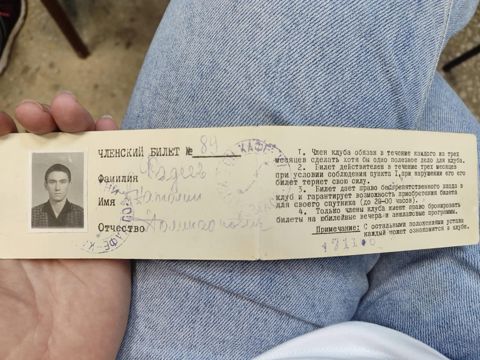 ЧЛЕНСКИЙ БИЛЕТ № 84
Фамилия
Имя
Отчество
1. Член клуба обязан в течение каждого из трех
месяцев сделать хотя бы одно полезное дело для клуба.
2. Билет действителен в течение трех месяцев
при условии соблюдения пункта 1, при нарушении его
билет теряет свою силу.
3. Билет дает право беспрепятственного входа в
клуб и гарантирует возможность приобретения билета
для своего спутника (до 20-00 часов).
4. Только члены клуба имеют право бронировать
билеты на юбилейные вечера и аншлаговые программы.
Примечание: С остальными положениями устава
каждый может ознакомится в клубе.